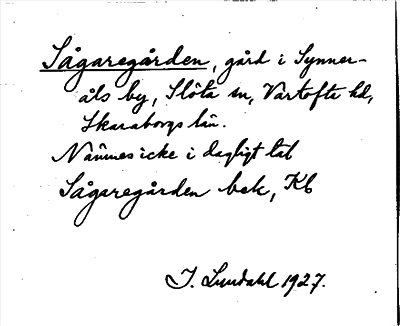 Sågaregården, gård i Synner-
åls by, Slöta sn, Vartofta hd,
Skaraborgs län.
Nämnes icke i dagligt tal
Sågaregården bek, Kb
I. Lundahl 1927.